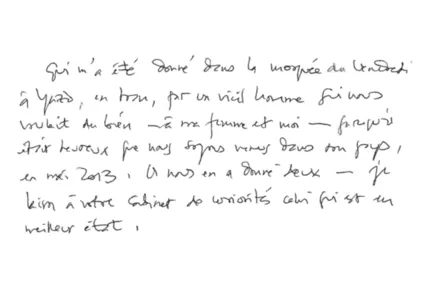 Qui m'a été donné dans la mosquée du Vendredi
à Yazd, en Iran, par un vieil homme qui nous
voulait du bien — à ma femme et moi — parce qu'il
était heureux que nous soyons venus dans son pays,
en mai 2013. Il nous en a donné deux — je
laisse à votre cabinet de curiosités celui qui est en
meilleur état.